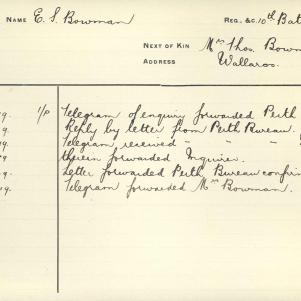 NAME E. S. Bowman
REG. &C. 10th Bat
NEXT OF KIN Mrs Thos. Bown
ADDRESS Wallaroo.
9. 1/P Telegram of enquiry forwarded Perth
9. Reply by letter from Perth Bureau.
9. Telegram received " " "
9 therein forwarded Inquirer.
9. Letter forwarded Perth Bureau confirm
19. Telegram forwarded Mrs Bowman.